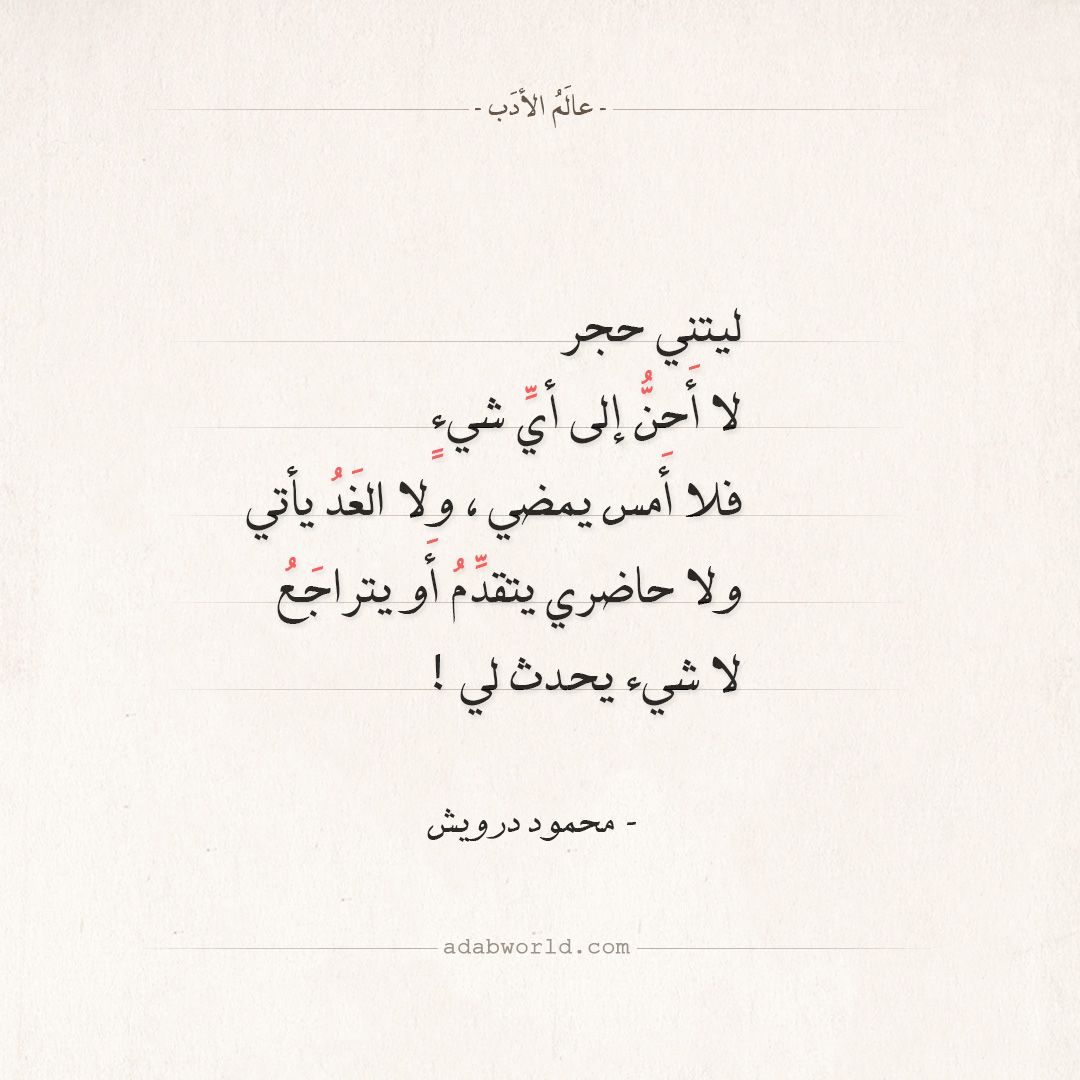 - عالَمُ الأدَب -
ليتني حجر
لا أَحنُّ إلى أيِّ شيءٍ
فلا أَمس يمضي ، ولا الغَدُ يأتي
ولا حاضري يتقدِّمُ أَو يتراجَعُ
لا شيء يحدث لي !
- محمود درويش
adabworld.com